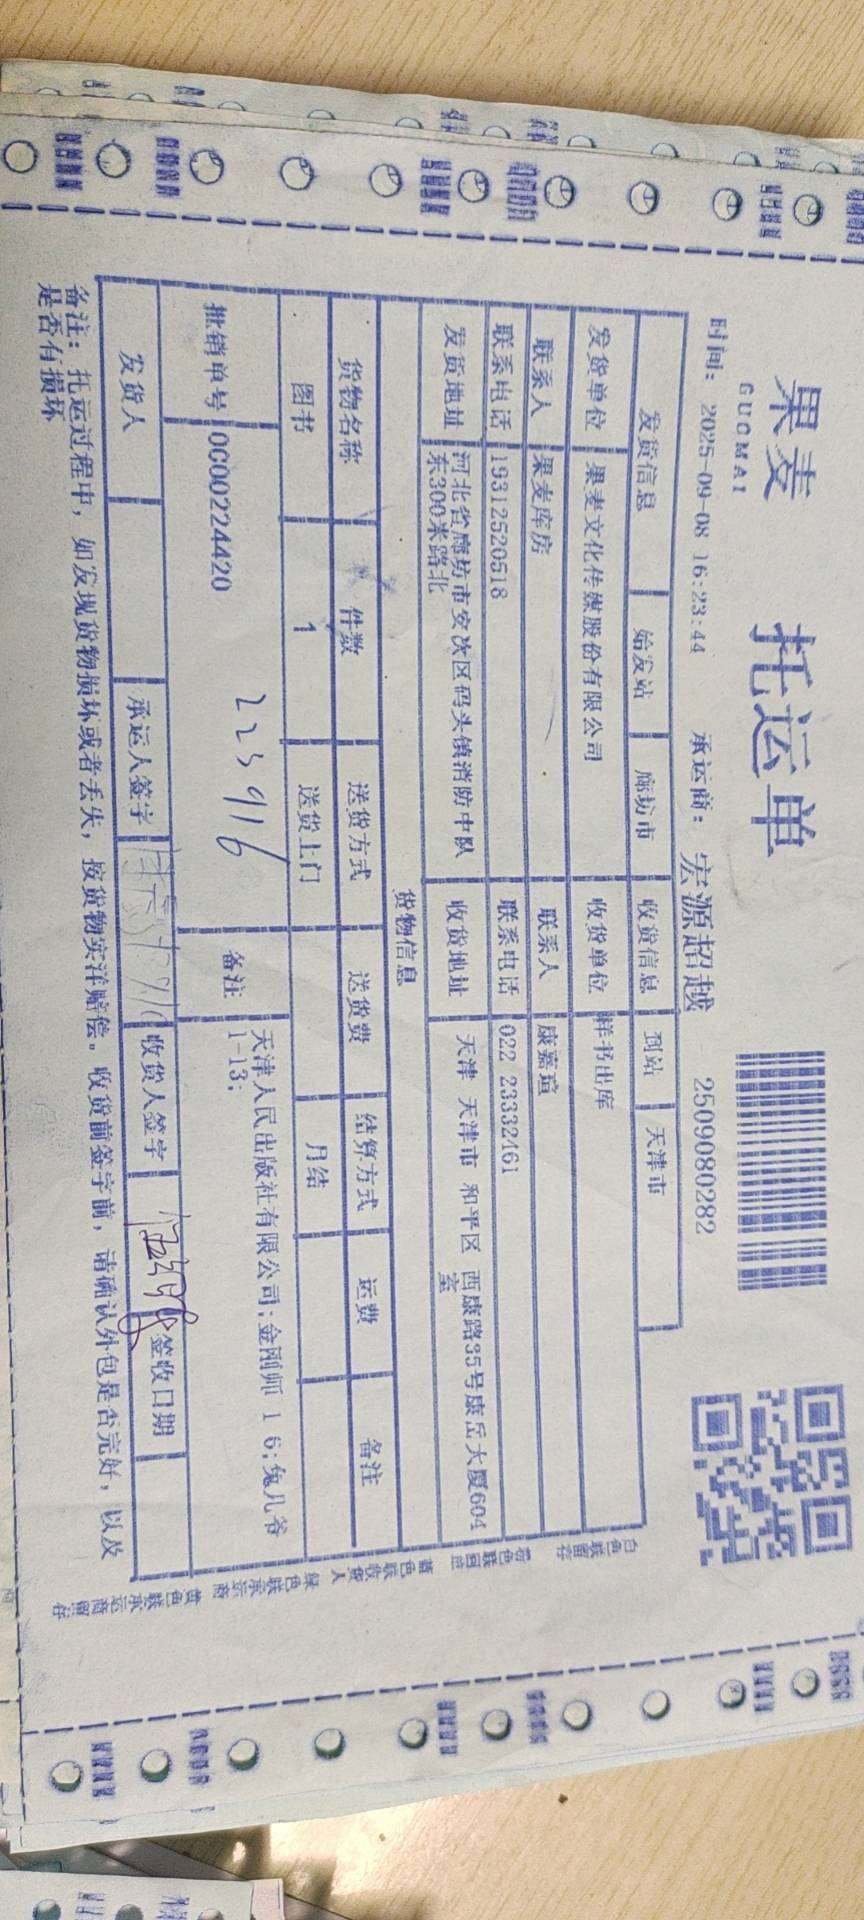 果麦
GUOMAI
托运单
时间: 2025-09-08 16:23:44 承运商: 宏源超越 2509080282
发货信息 始发站 廊坊市 收货信息 到站 天津市
发货单位 果麦文化传媒股份有限公司 收货单位 样书出库
联系人 果麦库房 联系人 康嘉瑄
联系电话 19312520518 联系电话 022 23332461
发货地址 河北省廊坊市安次区码头镇消防中队东300米路北 收货地址 天津 天津市 和平区 西康路35号康岳大厦604室
货物信息
货物名称 件数 送货方式 送货费 结算方式 运费 备注
图书 1 送货上门 月结
批销单号 0C00224420 备注 天津人民出版社有限公司;金刚师 1 6;兔儿爷
1-13;
223916
发货人 承运人签字 收货人签字 签收日期
备注: 托运过程中, 如发现货物损坏或者丢失, 按货物实洋赔偿。收货前签字前, 请确认外包是否完好, 以及
是否有损坏
白色联留存 粉色联回单 蓝色联收货人 绿色联承运商 黄色联承运商留存